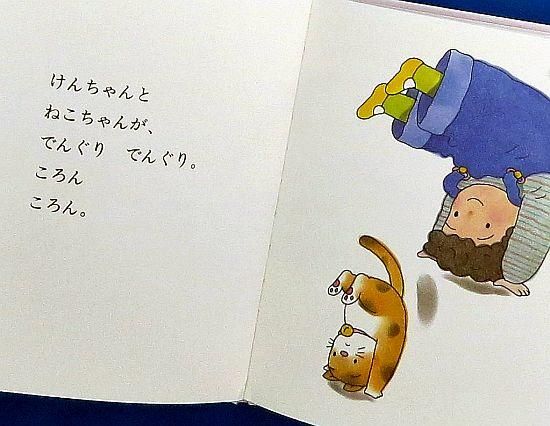 けんちゃんと
ねこちゃんが、
でんぐり　でんぐり。
ころん
ころん。